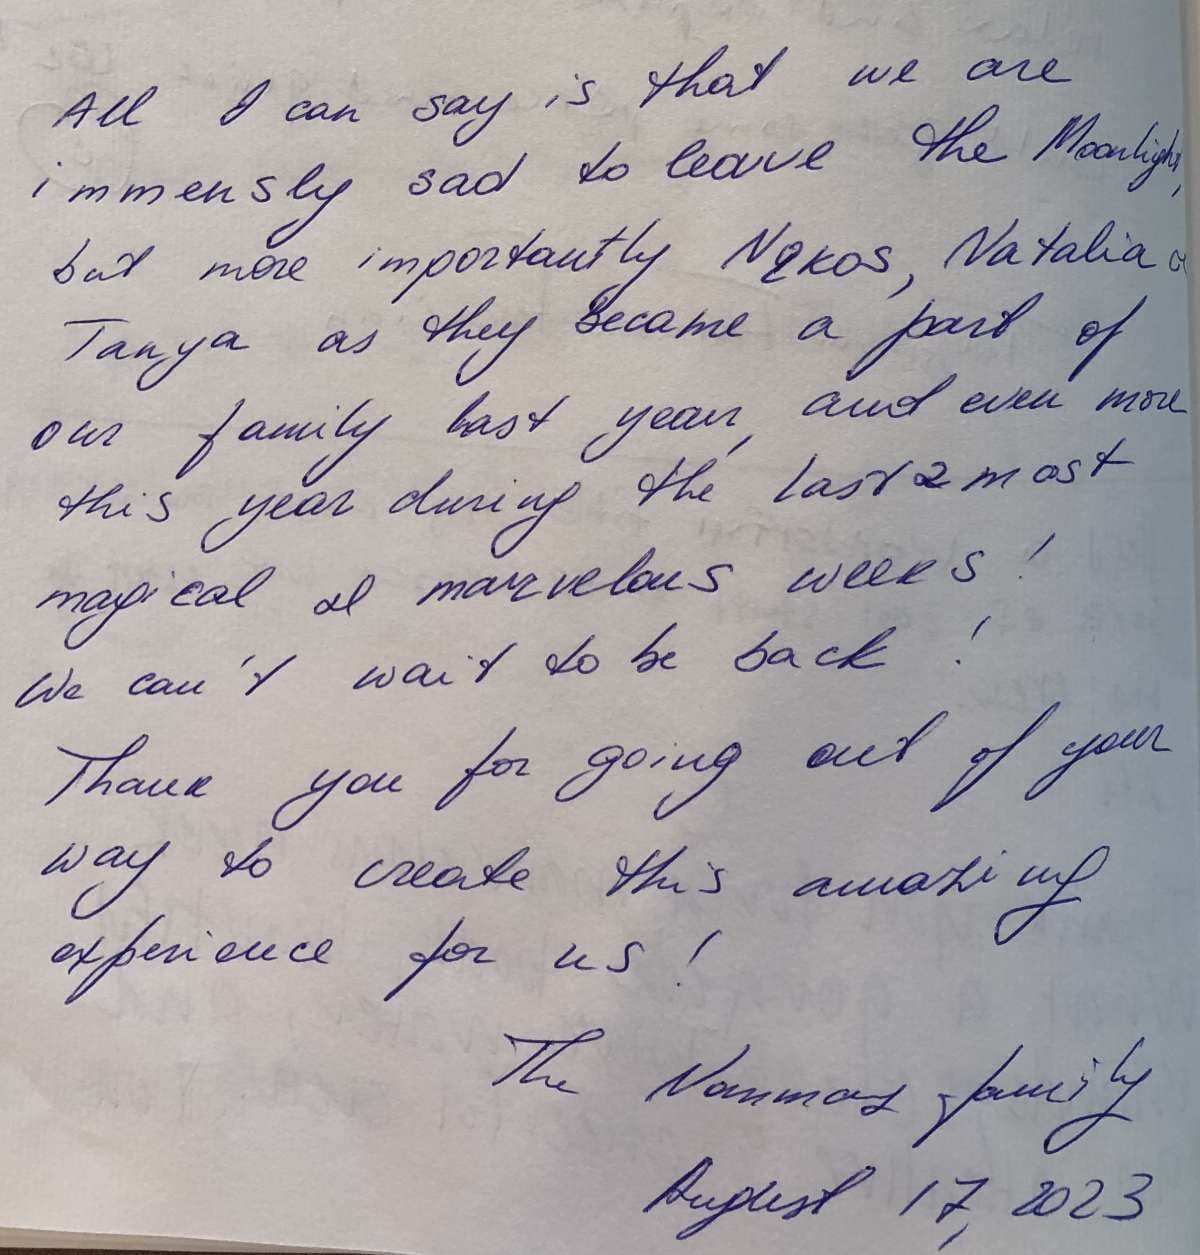 All I can say is that we are
immensly sad to leave the Moonlight,
but more importantly Nekos, Natalia &
Tanya as they became a part of
our family last year, and even more
this year during the last 2 most
magical & marvelous weeks!
We can't wait to be back!
Thank you for going out of your
way to create this amazing
experience for us!
The family
August 17, 2023